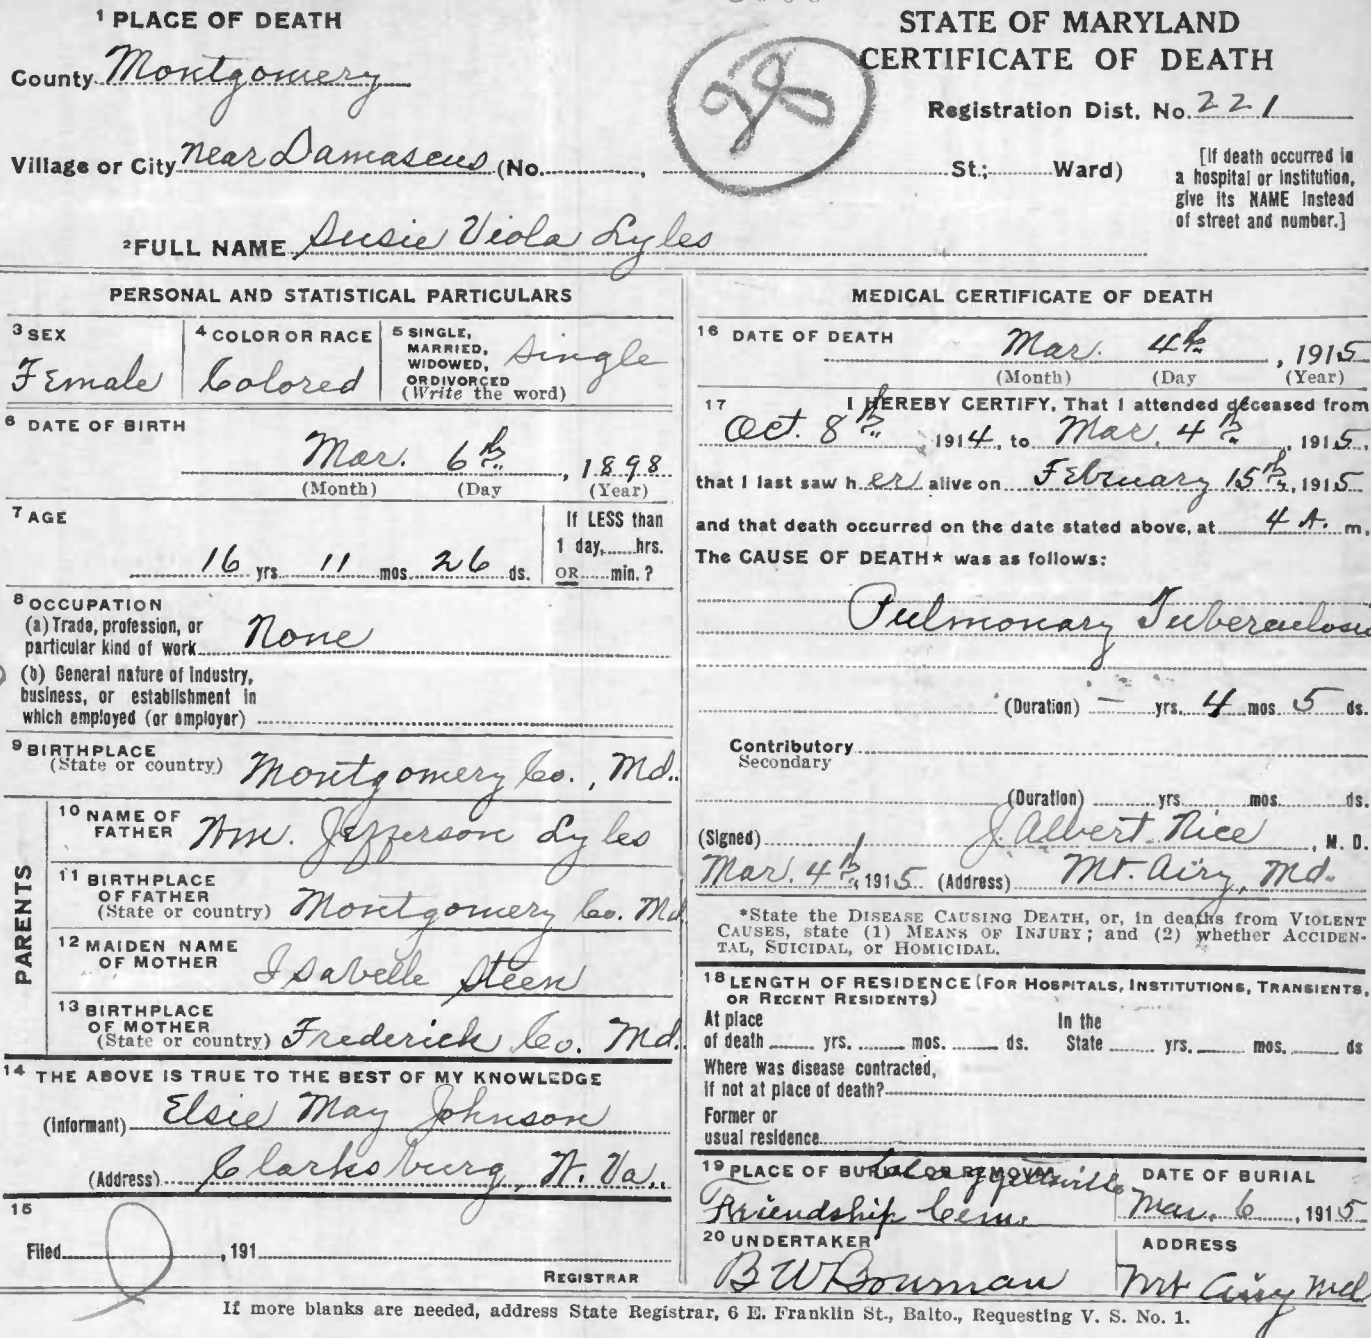 1 PLACE OF DEATH
County Montgomery
Village or City near Damascus (No. , St.; Ward)
STATE OF MARYLAND
CERTIFICATE OF DEATH
Registration Dist. No. 221
[If death occurred in
a hospital or institution,
give its NAME instead
of street and number.]
2 FULL NAME Susie Viola Lyles
PERSONAL AND STATISTICAL PARTICULARS
3 SEX
Female
4 COLOR OR RACE
Colored
5 SINGLE,
MARRIED,
WIDOWED,
OR DIVORCED
(Write the word)
Single
6 DATE OF BIRTH
Mar. 6th, 1898
(Month) (Day (Year)
7 AGE
16 yrs. 11 mos. 26 ds.
If LESS than
1 day, hrs.
OR min. ?
8 OCCUPATION
(a) Trade, profession, or
particular kind of work None
(b) General nature of industry,
business, or establishment in
which employed (or employer)
9 BIRTHPLACE
(State or country) Montgomery Co., Md.
PARENTS
10 NAME OF
FATHER Wm. Jefferson Lyles
11 BIRTHPLACE
OF FATHER
(State or country) Montgomery Co. Md
12 MAIDEN NAME
OF MOTHER Isabelle Steen
13 BIRTHPLACE
OF MOTHER
(State or country) Frederick Co. Md.
14 THE ABOVE IS TRUE TO THE BEST OF MY KNOWLEDGE
(Informant) Elsie May Johnson
(Address) Clarksburg, W. Va.
15
Filed , 191
REGISTRAR
MEDICAL CERTIFICATE OF DEATH
16 DATE OF DEATH
Mar. 4th, 1915
(Month) (Day (Year)
17 I HEREBY CERTIFY, That I attended deceased from
Oct. 8th, 1914, to Mar. 4th, 1915,
that I last saw her alive on February 15th, 1915
and that death occurred on the date stated above, at 4 A. m.
The CAUSE OF DEATH* was as follows:
Pulmonary Tuberculosis
(Duration) — yrs. 4 mos. 5 ds.
Contributory
Secondary
(Duration) yrs. mos. ds.
(Signed) J Albert Nice, M. D.
Mar. 4th, 1915 (Address) Mt. Airy, Md.
*State the DISEASE CAUSING DEATH, or, in deaths from VIOLENT
CAUSES, state (1) MEANS OF INJURY; and (2) whether ACCIDEN-
TAL, SUICIDAL, or HOMICIDAL.
18 LENGTH OF RESIDENCE (FOR HOSPITALS, INSTITUTIONS, TRANSIENTS,
OR RECENT RESIDENTS)
At place
of death yrs. mos. ds.
In the
State yrs. mos. ds
Where was disease contracted,
if not at place of death?
Former or
usual residence
19 PLACE OF BURIAL OR REMOVAL
Friendship Cem.
DATE OF BURIAL
Mar. 6, 1915
20 UNDERTAKER
B W Bowman
ADDRESS
Mt Airy Md
If more blanks are needed, address State Registrar, 6 E. Franklin St., Balto., Requesting V. S. No. 1.